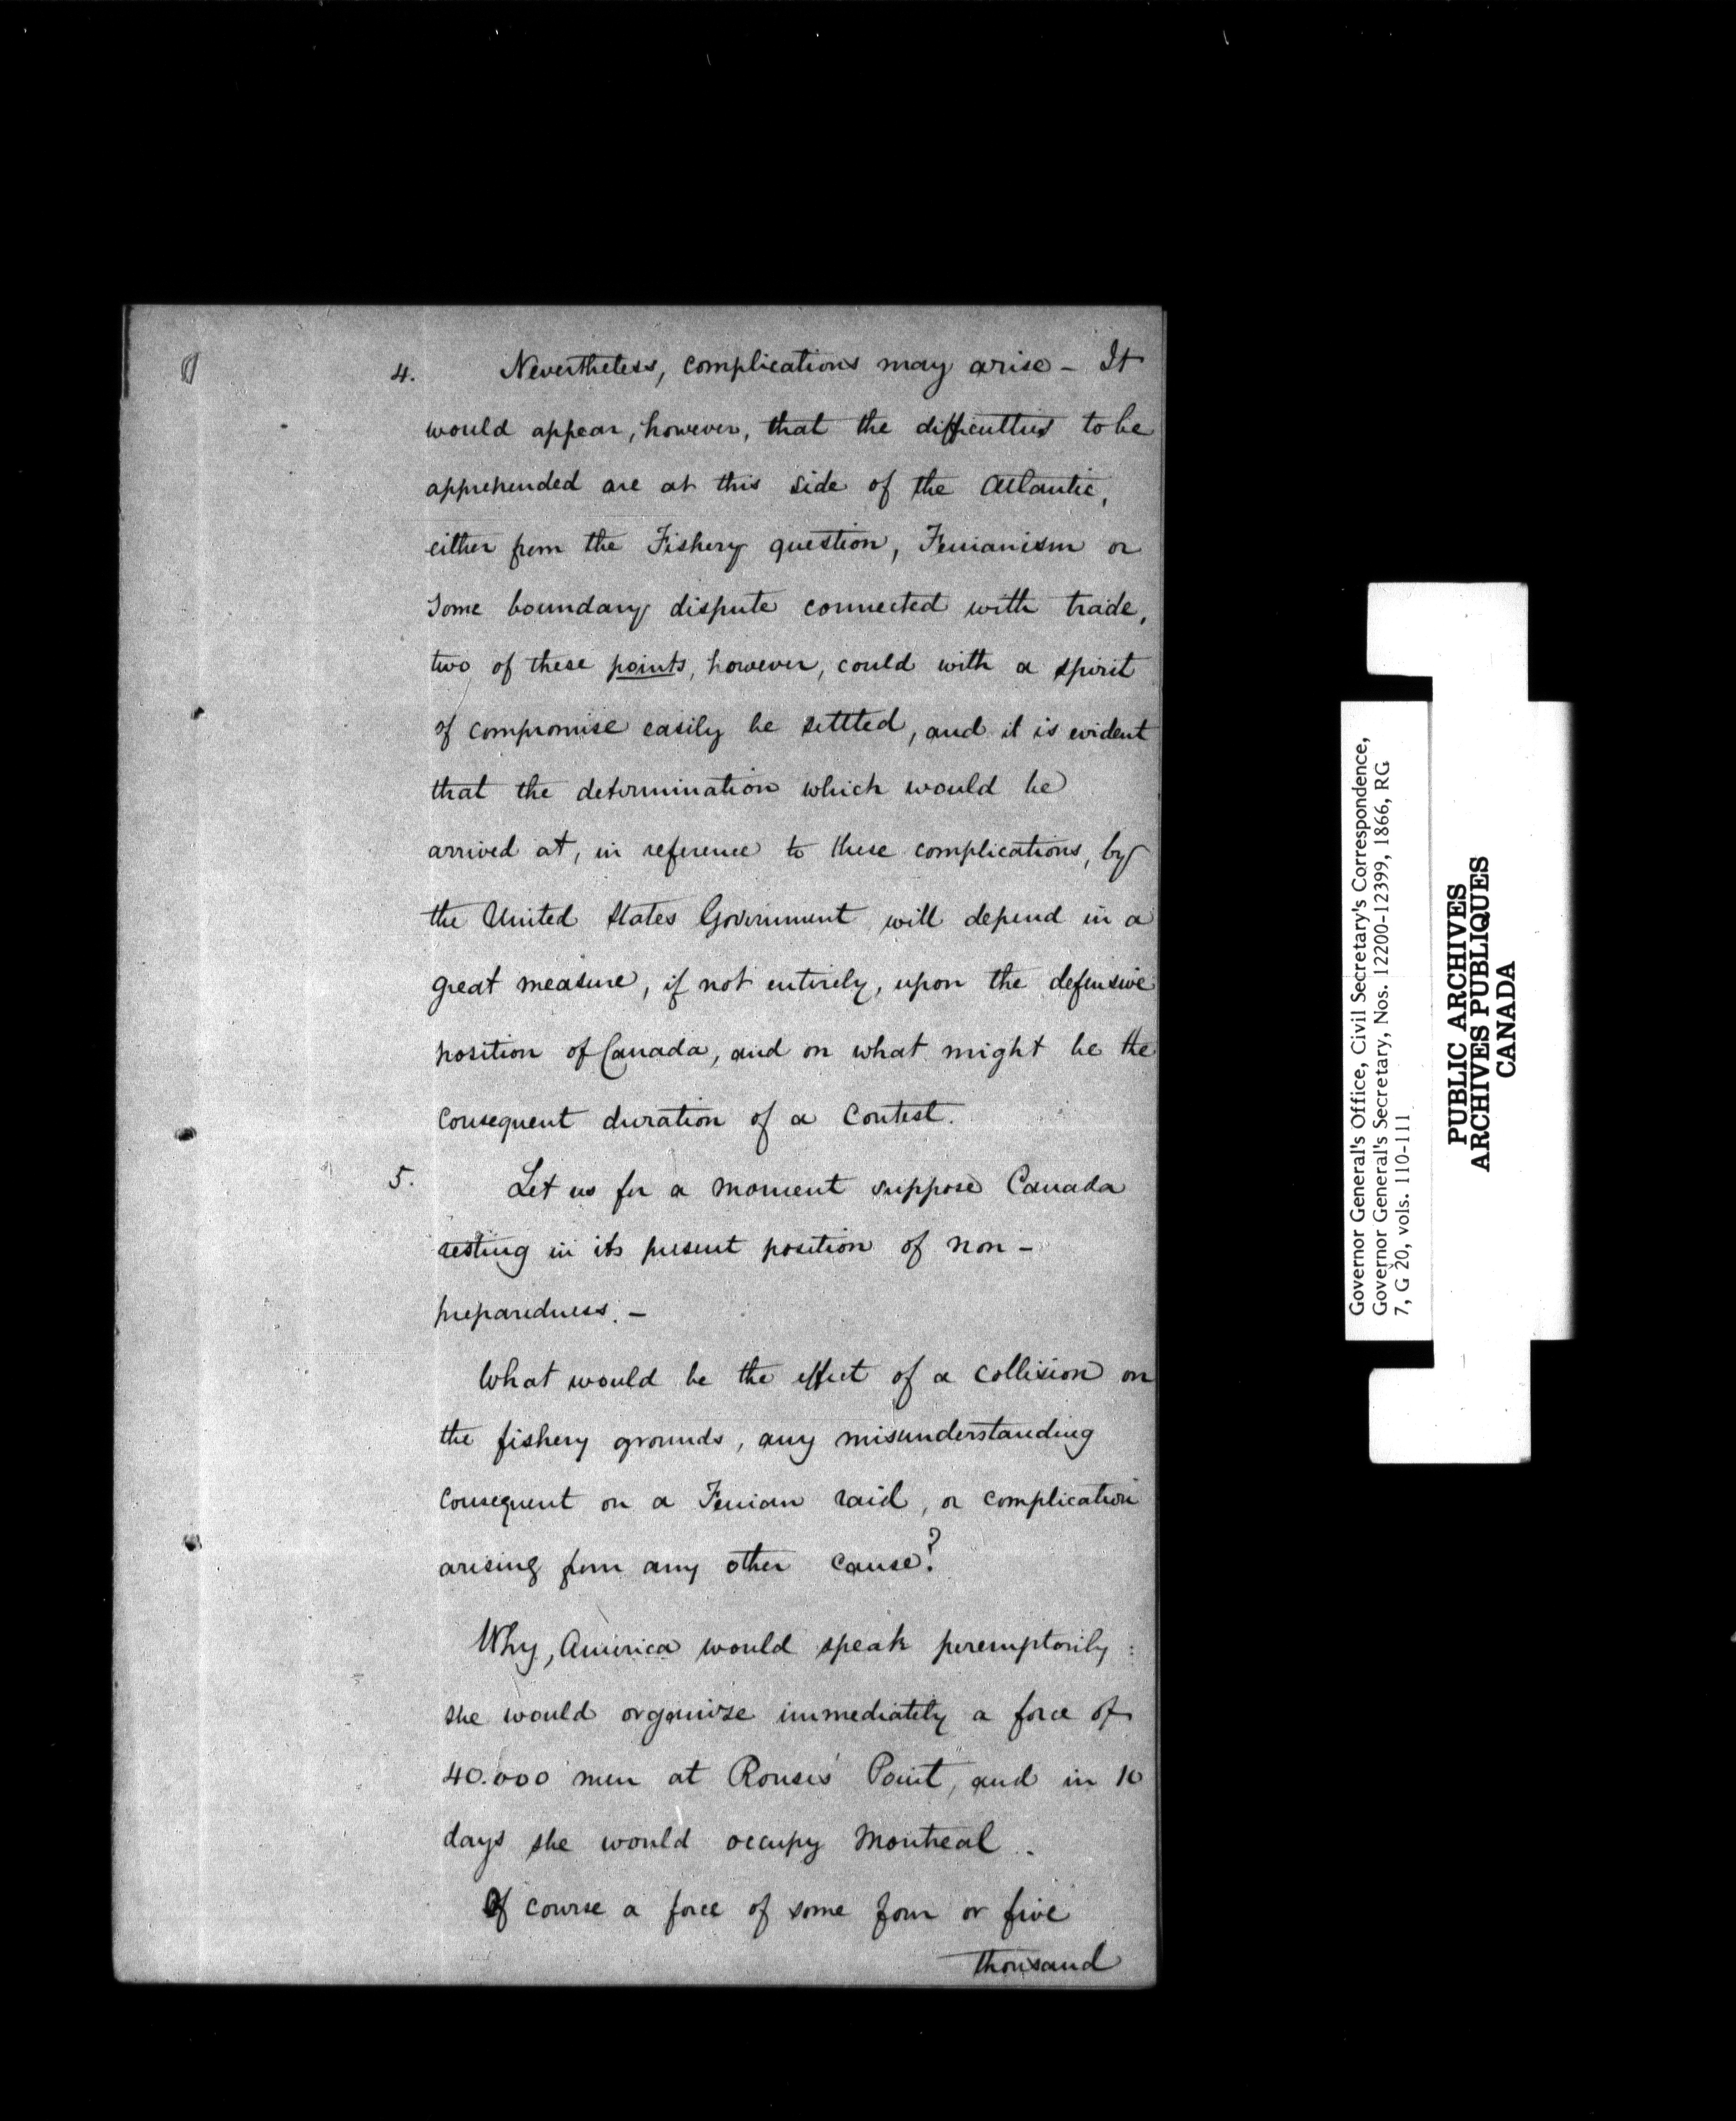 4. Nevertheless, complications may arise - It
would appear, however, that the difficulties to be
apprehended are at this side of the Atlantic,
either from the Fishery question, Fenianism or
some boundary dispute connected with trade,
two of these points, however, could with a spirit
of compromise easily be settled, and it is evident
that the determination which would be
arrived at, in reference to these complications, by
the United States Government will depend in a
great measure, if not entirely, upon the defensive
position of Canada, and on what might be the
consequent duration of a contest.
5. Let us for a moment suppose Canada
resting in its present position of non-
preparedness. -
What would be the effect of a collision on
the fishery grounds, any misunderstanding
consequent on a Fenian raid, or complication
arising from any other cause?
Why, America would speak peremptorily:
she would organize immediately a force of
40.000 men at Rouse's Point, and in 10
days she would occupy Montreal.
Of course a force of some four or five
thousand
Governor General's Office, Civil Secretary's Correspondence,
Governor General's Secretary, Nos. 12200-12399, 1866, RG
7, G 20, vols. 110-111
PUBLIC ARCHIVES
ARCHIVES PUBLIQUES
CANADA